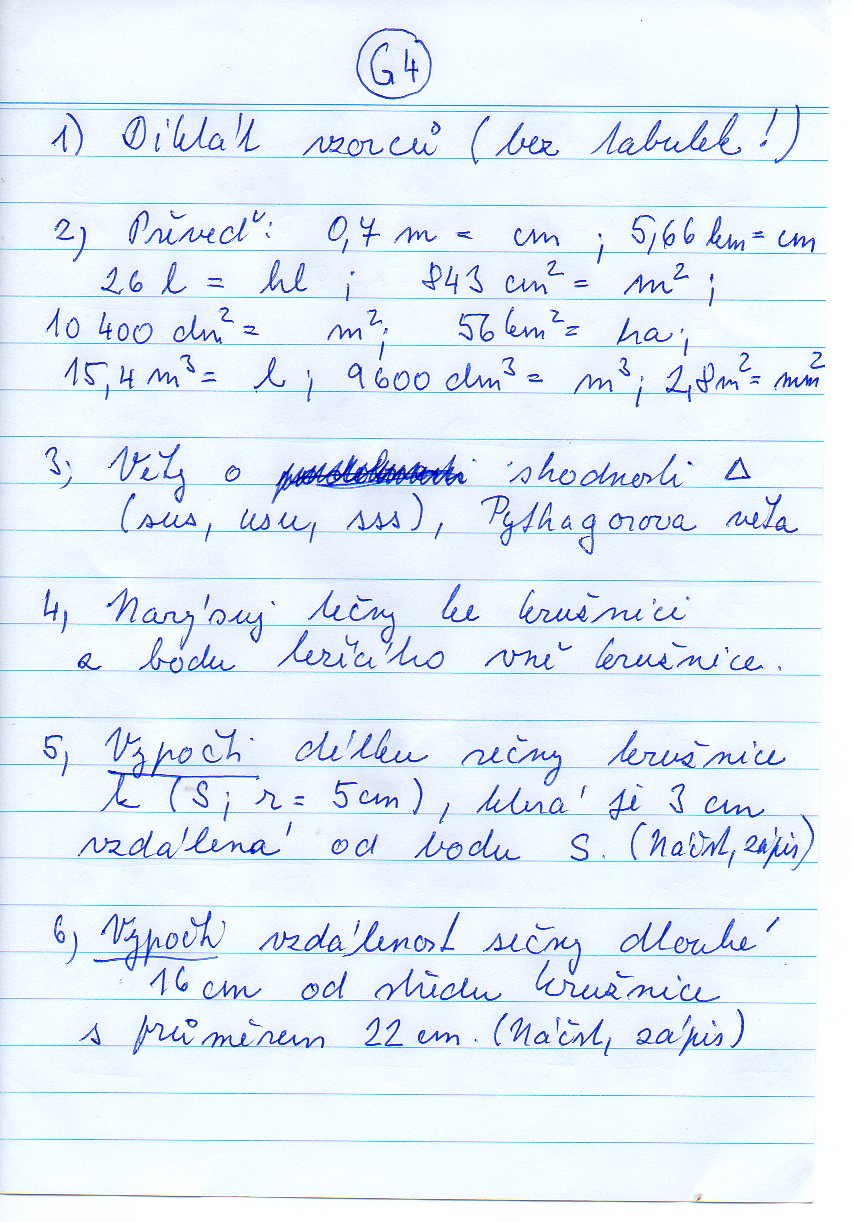 G4
1) Diktát vzorců (bez tabulek!)
2) Převeď: 0,7 m = cm ; 5,66 km = cm
26 l = hl ; 843 cm² = m² ;
10 400 dm² = m²; 56 km² = ha ;
15,4 m³ = l ; 9600 dm³ = m³ ; 2,8 m² = mm²
3; Věty o shodnosti △
(sus, usu, sss), Pythagorova věta
4, Narýsuj tečny ke kružnici
z bodu ležícího vně kružnice.
5, Vypočti délku sečny kružnice
k (S; r = 5 cm), která je 3 cm
vzdálená od bodu S. (Náčrt, zápis)
6, Vypočti vzdálenost sečny dlouhé
16 cm od středu kružnice
s průměrem 22 cm. (Náčrt, zápis)